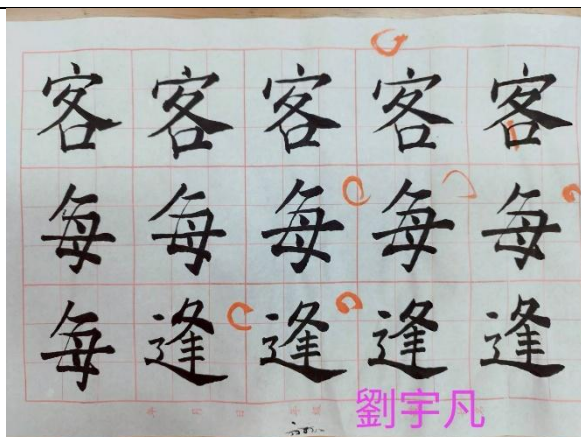 客客客客客
每每每每每
每逢逢逢逢
劉宇凡